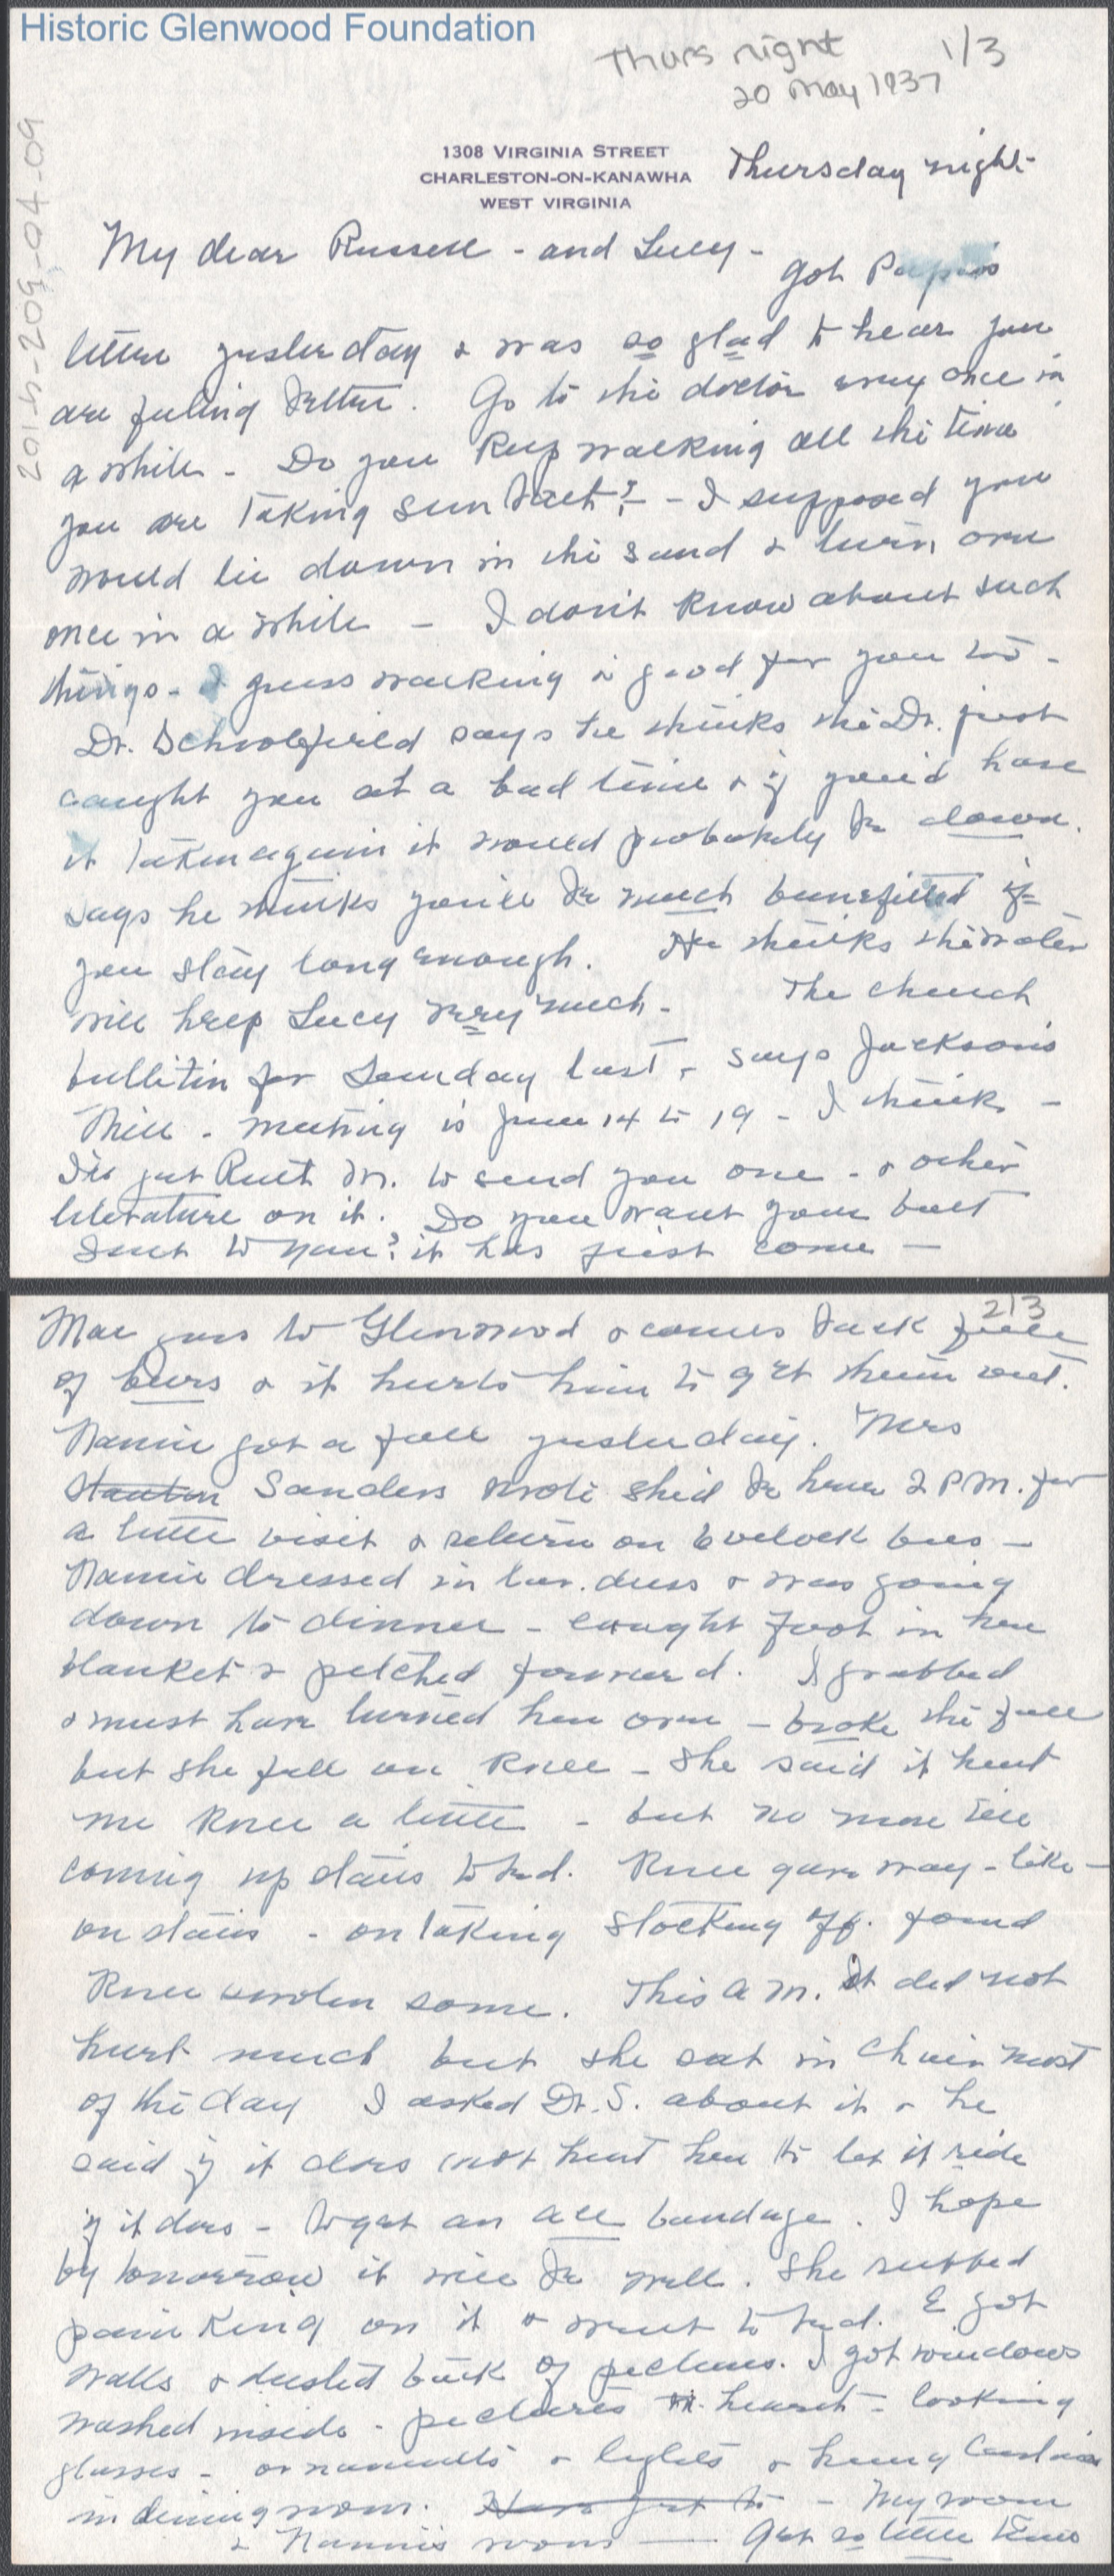 Historic Glenwood Foundation
Thurs night 1/3
20 May 1937
2015-209-04-09
1308 VIRGINIA STREET
CHARLESTON-ON-KANAWHA
WEST VIRGINIA
Thursday night
My dear Russell - and Lucy -
Got Papa's
letter yesterday & was so glad to hear you
are feeling better. Go to the doctor every once in
a while - Do you keep walking all the time
you are taking sun bath? - I supposed you
would lie down in the sand & turn over
once in a while - I don't know about such
things - I guess walking is good for you too -
Dr. Schoolfield says he thinks the Dr. just
caught you at a bad time & if you'd have
it taken again it would probably be down.
says he thinks you'll be much benefitted if
you stay long enough. He thinks the water
will help Lucy very much - The church
bulletin for Sunday last, says Jackson's
Mill - meeting is June 14 to 19 - I think -
I'll get Ruth M. to send you one - & other
literature on it. Do you want your belt
sent to you? it has just come -
2/3
Mac goes to Glenwood & comes back full
of burs & it hurts him to get them out.
Nannie got a fall yesterday. Mrs
Stanton Sanders wrote she'd be here 2 P.M. for
a little visit & return on 6 oclock bus -
Nannie dressed in lav. dress & was going
down to dinner - caught foot in her
blanket & pitched forward. I grabbed
& must have turned her over - broke the fall
but she fell on knee - she said it hurt
one knee a little - but no more till
coming up stairs to bed. Knee gave way - like -
on stairs - on taking stocking off. found
knee swolen some. This a m. it did not
hurt much but she sat in chair most
of the day I asked Dr. S. about it & he
said if it does not hurt her to let it ride
if it does - to get an ace bandage. I hope
by tomorrow it will be well. She rubbed
pain King on it & went to bed. E got
walls & dusted back of pictures. I got windows
washed inside - pictures hearth - looking
glasses - ornaments & lights & hung curtains
in dining room. Have got to - My room
& Nannie's room - Get so little time